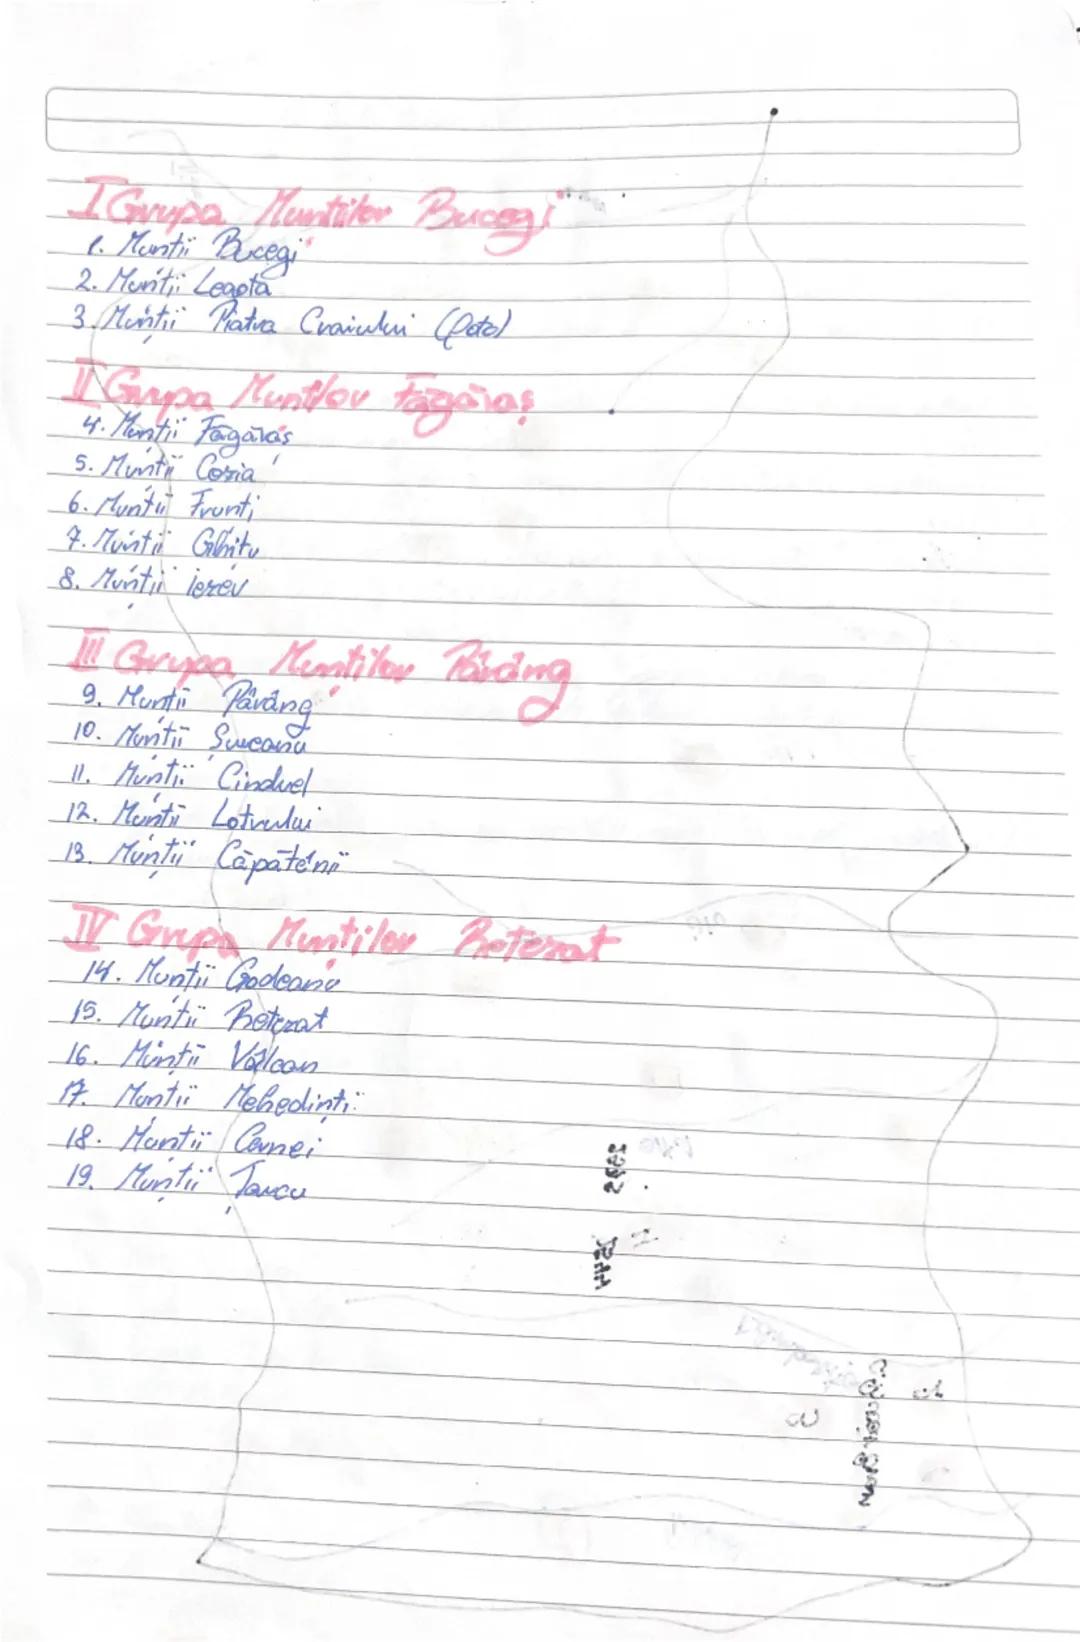 I Grupa Munților Bucegi
1. Munții Bucegi
2. Munții Leaota
3. Munții Piatra Craiului
II Grupa Munților Făgăraș
4. Munții Făgăraș
5. Munții Cozia
6. Munții Frunți
7. Munții Ghițu
8. Munții iezer
III Grupa Munților Parâng
9. Munții Pârâng
10. Munții Șureanu
11. Munții Cindrel
12. Munții Lotrului
13. Munții Căpățânii
IV Grupa Munților Retezat
14. Munții Godeanu
15. Munții Retezat
16. Munții Vâlcan
17. Munții Mehedinți
18. Munții Cernei
19. Munții Țarcu